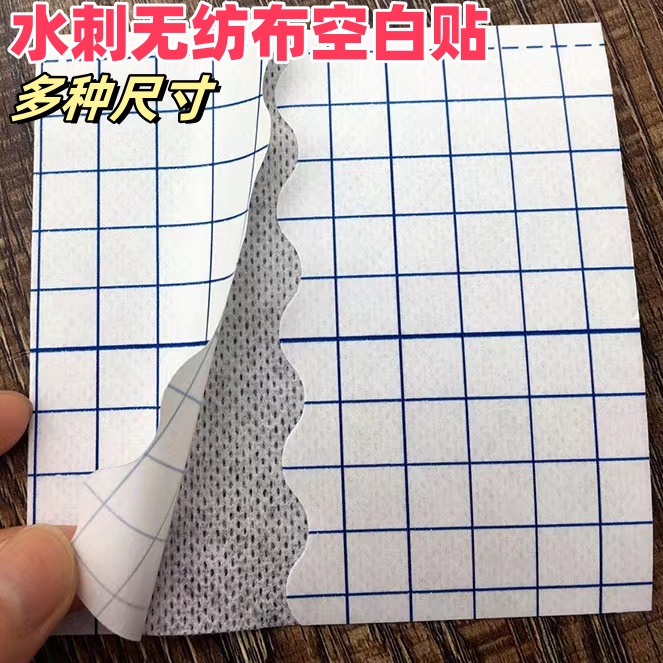 水刺无纺布空白贴
多种尺寸